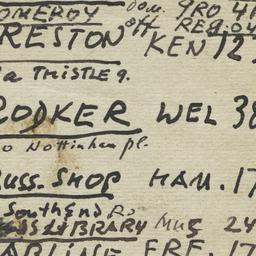 OMEROY dom. GRO 41
off REG.04
RESTON KEN 12
ia THISTLE G.
RODKER WEL 38
o Nottinham pl.
RUSS. SHOP HAM. 17
Southend Ro
SS LIBRARY MUS 24
ARLINE FRE. 17